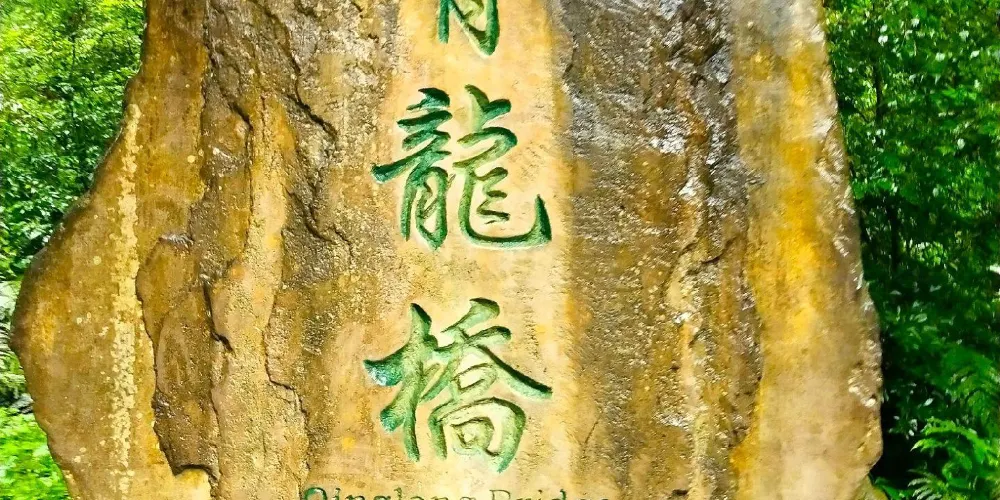 青
龍
橋
Qinglong Bridge